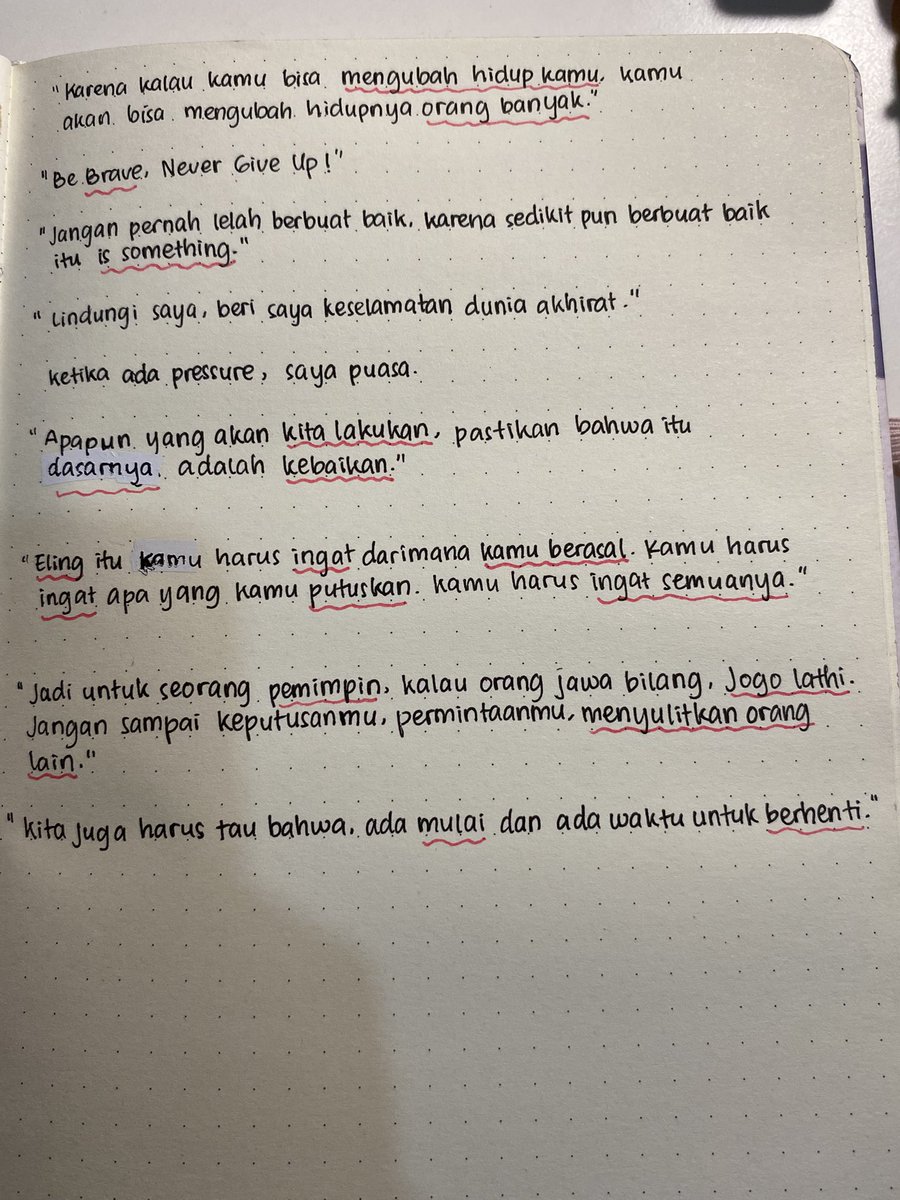 "Karena kalau kamu bisa mengubah hidup kamu, kamu
akan bisa mengubah hidupnya orang banyak."
"Be Brave, Never Give Up!"
"Jangan pernah lelah berbuat baik, karena sedikit pun berbuat baik
itu is something."
"Lindungi saya, beri saya keselamatan dunia akhirat."
ketika ada pressure, saya puasa.
"Apapun yang akan kita lakukan, pastikan bahwa itu
dasarnya adalah kebaikan."
"Eling itu kamu harus ingat darimana kamu berasal. Kamu harus
ingat apa yang kamu putuskan. Kamu harus ingat semuanya."
"Jadi untuk seorang pemimpin, kalau orang jawa bilang, Jogo lathi.
Jangan sampai keputusanmu, permintaanmu, menyulitkan orang
lain."
"Kita juga harus tau bahwa, ada mulai dan ada waktu untuk berhenti."